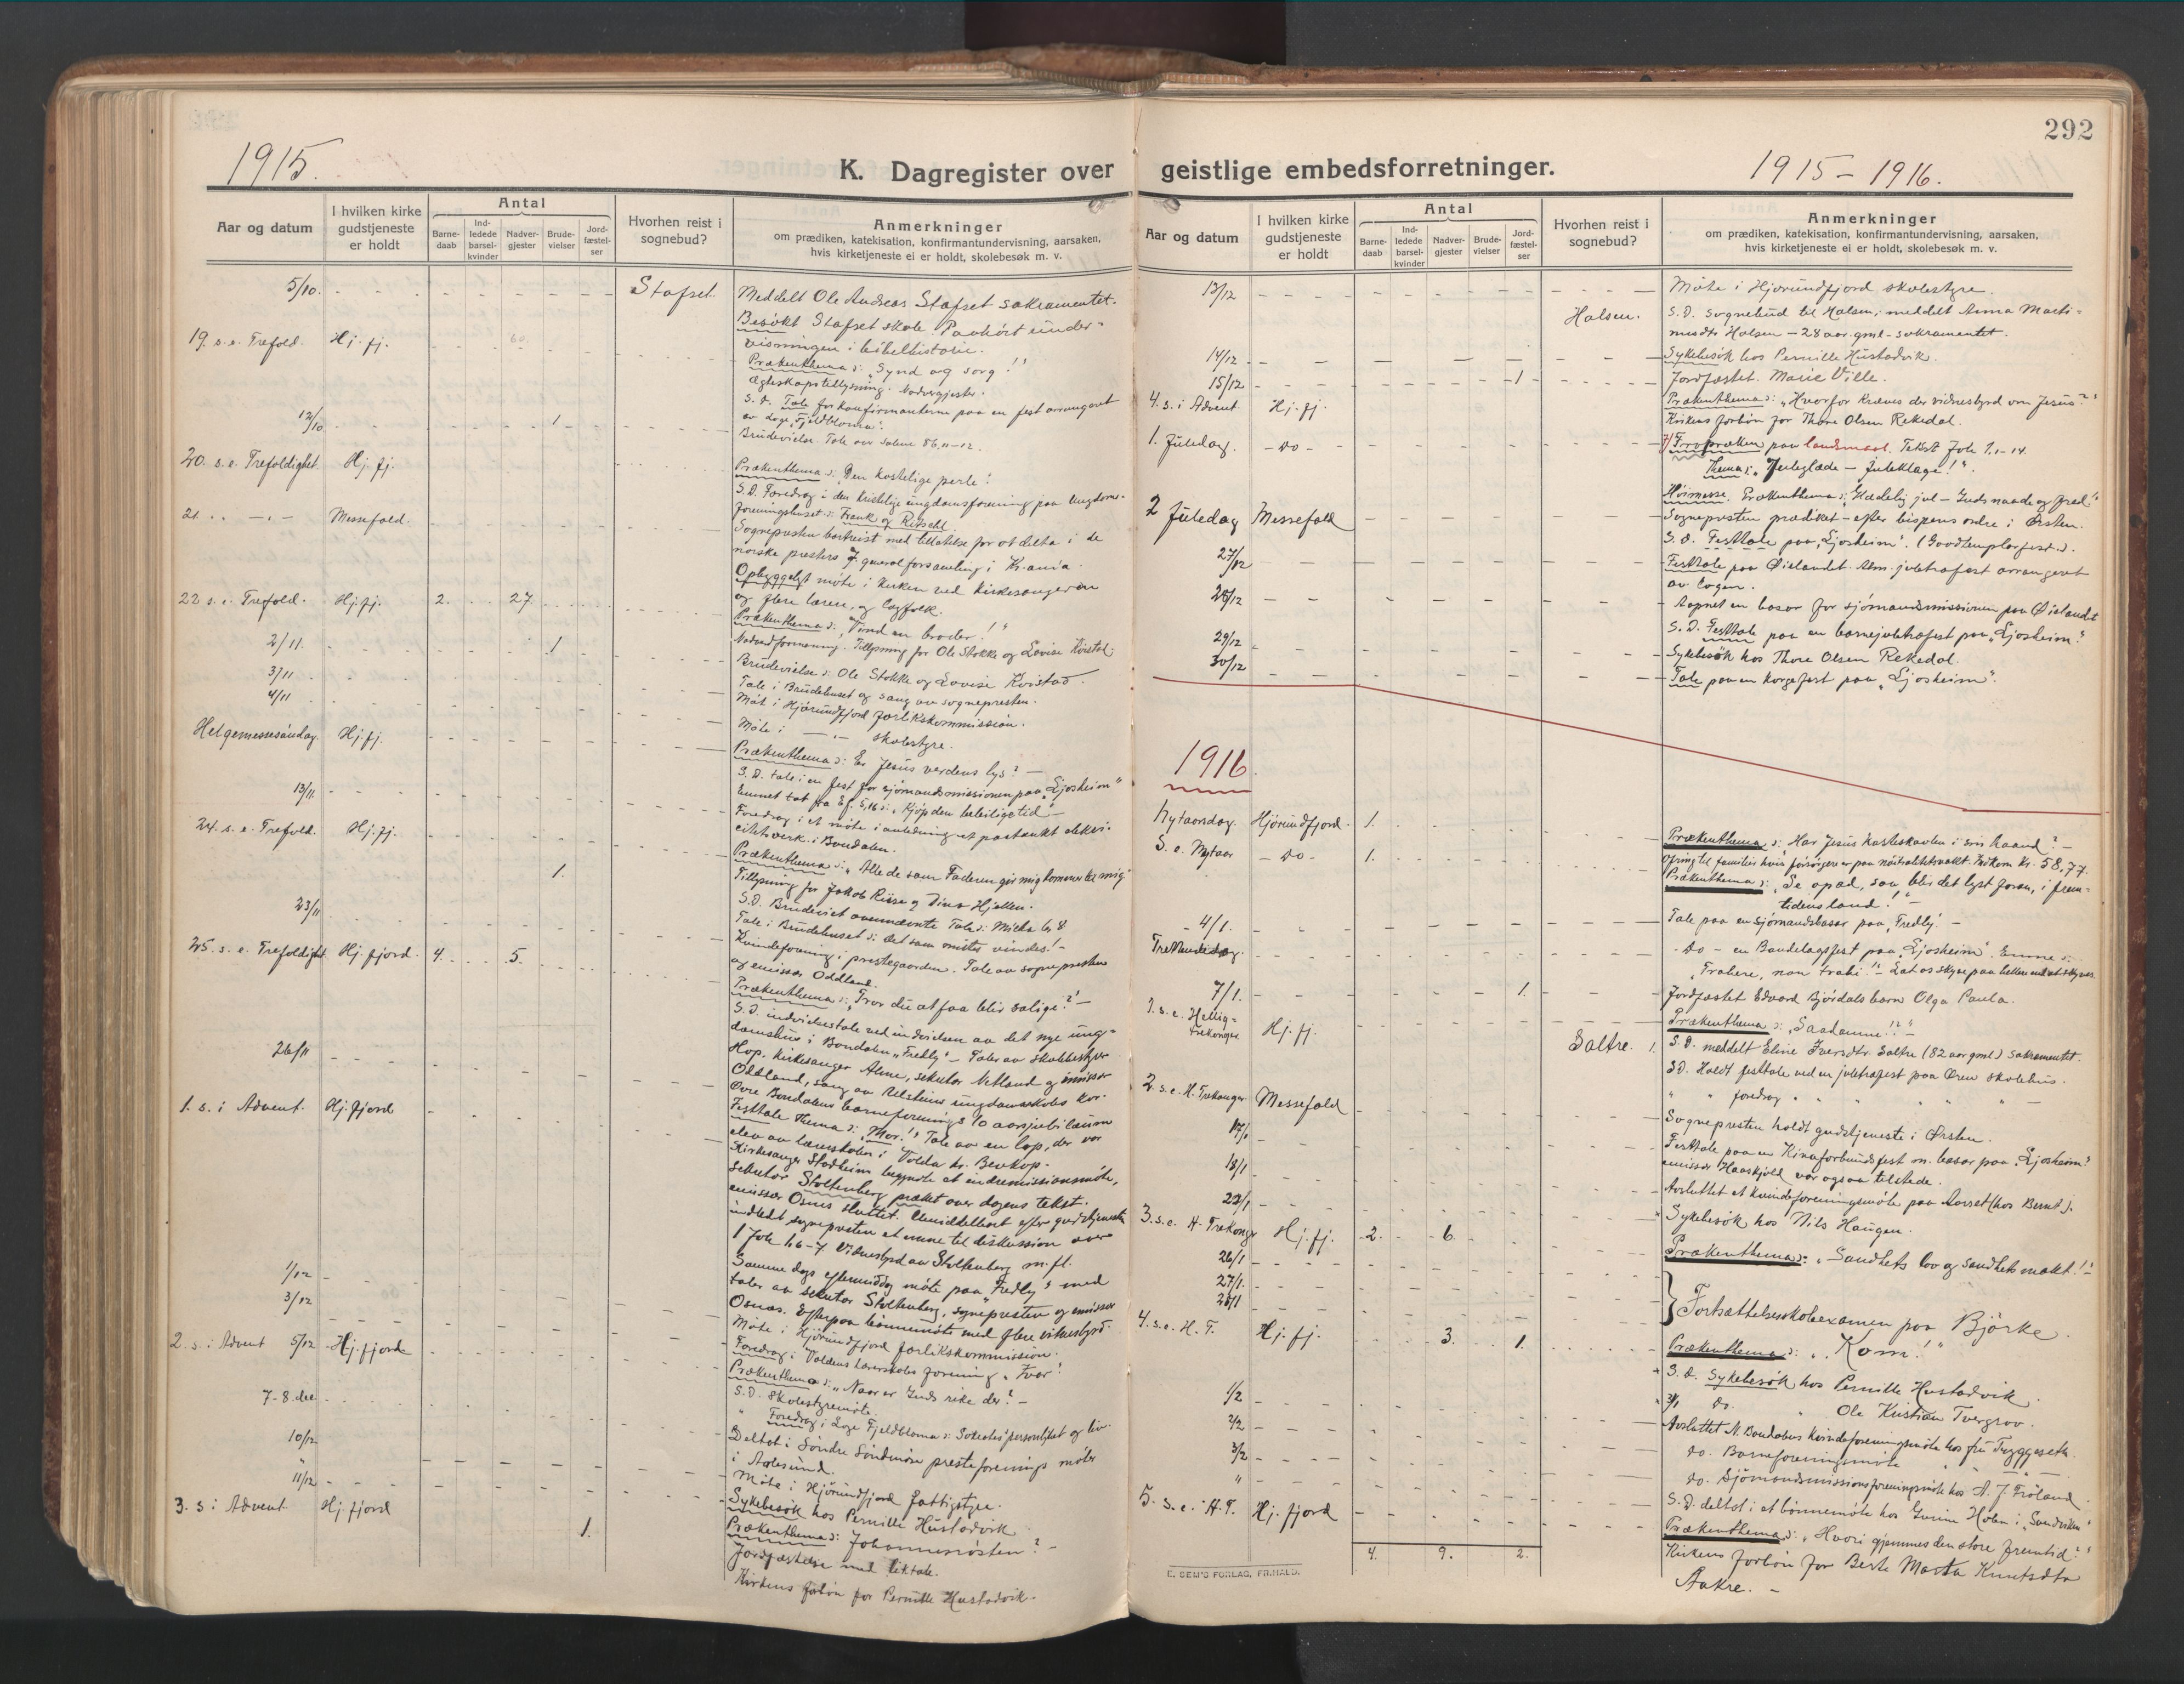 1915.
K. Dagregister over
Aar og datum
I hvilken kirke gudstjeneste er holdt
Antal
Barne-daab
Ind-ledede barsel-kvinder
Nadver-gjester
Brude-vielser
Jord-fæstel-ser
Hvorhen reist i sognebud?
Anmerkninger
om prædiken, katekisation, konfirmantundervisning, aarsaken,
hvis kirketjeneste ei er holdt, skolebesøk m. v.
5/10. Stafset. Meddelt Ole Andreas Stafset sakramentet.
Besökt Stafset skole. Paahört under-
visningen i bibelhistorie.
19. s. e. Trefold. Hj. fj. 60.
Prækenthema ɔ: „Synd og sorg!"
Ægteskapstillysning. Nadvergjester.
S. D. Tale for konfirmanterne paa en fest arrangeret
av loge „Fjeldblomen".
12/10 1
Brudevielse. Tale over Salme 86, 11-12.
20. s. e. Trefoldighet. Hj. fj.
Prækenthema ɔ: Den kostelige perle!
S. D. Foredrag i den kristelige ungdomsforening paa Ungdoms-
foreningshuset ɔ: Frank og Ritschl.
21. Messefald.
Sognepresten bortreist med tilladelse for at delta i de
norske presters generalforsamling i Kr.ania.
Opbyggeligt möte i kirken ved kirkesangeren
og flere lærere, og lægfolk.
22 s. e. Trefold. Hj. fj. 2. 27
Prækenthema ɔ: „Vind en broder!"
Nadverdformaning. Tillysning for Ole Stokke og Lovise Kvistad.
2/11. 1
Brudevielse ɔ: Ole Stokke og Lovise Kvistad.
Tale i Brudehuset og sang av sognepresten.
3/11 Möt i Hjörundfjord forlikskommission.
4/11 Möte i skolestyre.
Helgemessesöndag. Hj. fj.
Prækenthema ɔ: Er Jesus verdens lys? -
S. D. tale i en fest for sjömandsmissionen paa „Ljosheim"
Emnet tat fra Ef. 5,16 ɔ: „Kjöp den beleilige tid"
13/11. Foredrag i et möte i anledning et paatænkt elektri-
citetsverk i Bondalen.
24. s. e. Trefold. Hj. fj. 1.
Prækenthema ɔ: „Alle de som Faderen gir mig kommer til mig"
Tillysning for Jakob Riise og Dina Hjellen.
S. D. Brudeviet ovennævnte Tale ɔ: Micha 6, 8
Tale i Brudehuset ɔ: Det som mistes vindes! -
23/11 Kvindeforening i prestegaarden. Tale av sognepresten
og emissær Oddland.
25. s. e. Trefoldighet Hj. fjord. 4. 5.
Prækenthema ɔ: „Tror du at faa blir salige?" -
S. D. indvielsestale ved indvielsen av det nye ung-
domshus i Bondalen „Fredly" - Taler av skolebestyrer
Hop, kirkesanger Alme, sekretær Netland og emissær
Oddland, sang av ungdomsskoles kor.
26/11 Øvre Bondalens barneforenings 10 aarsjubilæum
Festtale Thema ɔ: „Mor!" Tale av en lap, der var
elev av lærerskolen i Volda hr. Bevkop.
1. s. i Advent. Hj. fjord
Kirkesanger Stadheim begyndte et indremissionsmöte,
sekretær Stoltenberg præket over dagens tekst.
emissær Osnes sluttet. Umiddelbart efter gudstjenesten
indledt sognepresten et emne til diskussion over
1 Joh 1, 6-7. Vidnesbyrd av Stoltenberg m. fl.
Samme dags eftermiddag möte paa „Fredly" med
taler av sekretær Stoltenberg, sognepresten og emissær
Osnes. Efterpaa bönnemöte med flere vidnesbyrd.
1/12 Möte i Hjörundfjord forlikskommission.
3/12 Foredrag i Voldens Lærerskoles forening
2. s. i Advent 5/12 Hj. fjord
Prækenthema ɔ: „Naar er Guds rike der? -
S. D. Skolestyremöte.
" Foredrag i Loge Fjeldbloma ɔ: Sokrates' personlighet og liv.
7-8. dec Deltat i Söndre Söndmöre presteforenings möter
i Aalesund.
10/12 Möte i Hjörundfjord fattigstyre.
11/12 Sykebesök hos Pernille Hustadvik
3. s i Advent. Hj. fjord 1.
Prækenthema ɔ: Johannesrösten? -
Jordfæstelse med liktale.
Kirkens forbön for Pernille Hustadvik.
292
geistlige embedsforretninger.
1915 - 1916.
Aar og datum
I hvilken kirke gudstjeneste er holdt
Antal
Barne-daab
Ind-ledede barsel-kvinder
Nadver-gjester
Brude-vielser
Jord-fæstel-ser
Hvorhen reist i sognebud?
Anmerkninger
om prædiken, katekisation, konfirmantundervisning, aarsaken,
hvis kirketjeneste ei er holdt, skolebesøk m. v.
13/12 Möte i Hjörundfjord skolestyre.
Halsen. S. D. sognebud til Halsen, meddelt Anna Marti-
nusdtr Halsen - 28 aar gml - sakramentet.
14/12 Sykebesök hos Pernille Hustadvik.
15/12 1 Jordfæstet Marie Ville.
4. s. i Advent Hj. fj. Prækenthema ɔ: „Hvorfor kræves der vidnesbyrd om Jesus?"
Kirkens forbön for Thore Olsen Rekedal.
1. Juledag. - do - Fropræken paa landsmaal. Tekst Joh 1. 1-14.
Thema ɔ: „Juleglæde - Juleklage!".
Höimesse. Prækenthema ɔ: Glædelig jul - Guds naade og fred"
2 Juledag Messefald Sognepresten prædiket - efter bispens ordre i Ørsten.
S. D. Festtale paa „Ljosheim". (Goodtemplarfest).
27/12 Festtale paa Øielandet. Alm. juletræfest arrangeret
av Logen.
28/12 Aapnet en basar for sjömandsmissionen paa Øielandet
S. D. Festtale paa en barnejuletræfest paa „Ljosheim"
29/12 Sykebesök hos Thore Olsen Rekedal.
30/12 Tale paa en korgefest paa „Ljosheim".
1916.
Nytaarsdag. Hjörundfjord. 1. Prækenthema ɔ: Har Jesus kasteskovlen i sin haand? -
Ofring til familier hvis forsörgere er paa nöitralitetsvakt. Indkom Kr. 58,77.
S. e. Nytaar - do - 1. Prækenthema ɔ: „Se opad, saa blir det lyst foran, i frem-
tidens land!" -
4/1. Tale paa en sjömandsbasar paa „Fredly". -
Trettendedag. - do - en Bondelagsfest paa „Ljosheim". Emne ɔ:
„Trahere, non trahi!" - Lat os skyve paa heller end at skyves.
7/1. 1. Jordfæstet Edvard Björdals barn Olga Paula.
1. s. e. Hellig-
Trekonger. Hj. fj. Prækenthema ɔ: „Saadanne!?" -
Saltre. 1. S. D. meddelt Eline Iversdtr. Saltre (82 aar gml) sakramentet.
S. D. Holdt festtale ved en juletræfest paa Ören skolehus.
" " foredrag " " " "
2 s. e. H. Trekonger Messefald Sognepresten holdt gudstjeneste i Ørsten.
17/1 Festtale paa en Kinaforbundsfest m. basar paa „Ljosheim"
emissær Haaskjold var ogsaa tilstede.
18/1 Avsluttet et kvindeforeningsmöte paa Aarset (hos Bernt).
22/1 Sykebesök hos Nils Haugen.
3. s. e. H. Trekonger Hj. fj. 2. 6 Prækenthema ɔ: „Sandhets lov og sandhets makt!" -
26/1
27/1. } Fortsættelsesskoleexamen paa Björke.
28/1
4. s. e. H. T. Hj. fj. 3. 1. Prækenthema ɔ: „Kom!"
S. D. Sykebesök hos Pernille Hustadvik
do. " Ole Kristian Tvergrov.
1/2 Avsluttet N. Bondalens Kvindeforeningsmöte hos fru Tryggeseth.
2/2 do. Barneforeningsmöte " —"—
3/2 do. Sjömandsmissionsforeningsmöte hos A. J. Fröland.
" S. D. deltat i et bönnemöte hos Holen i „Sandviken"
5. s. e. H. T. Hj. fjord Prækenthema ɔ: „Hvori gjemmes den store fremtid?"
Kirkens forbön for Berte Marta Knutsdtr
Aakre. -
4. 9. 2.
E. SEM'S FORLAG, FR.HALD.